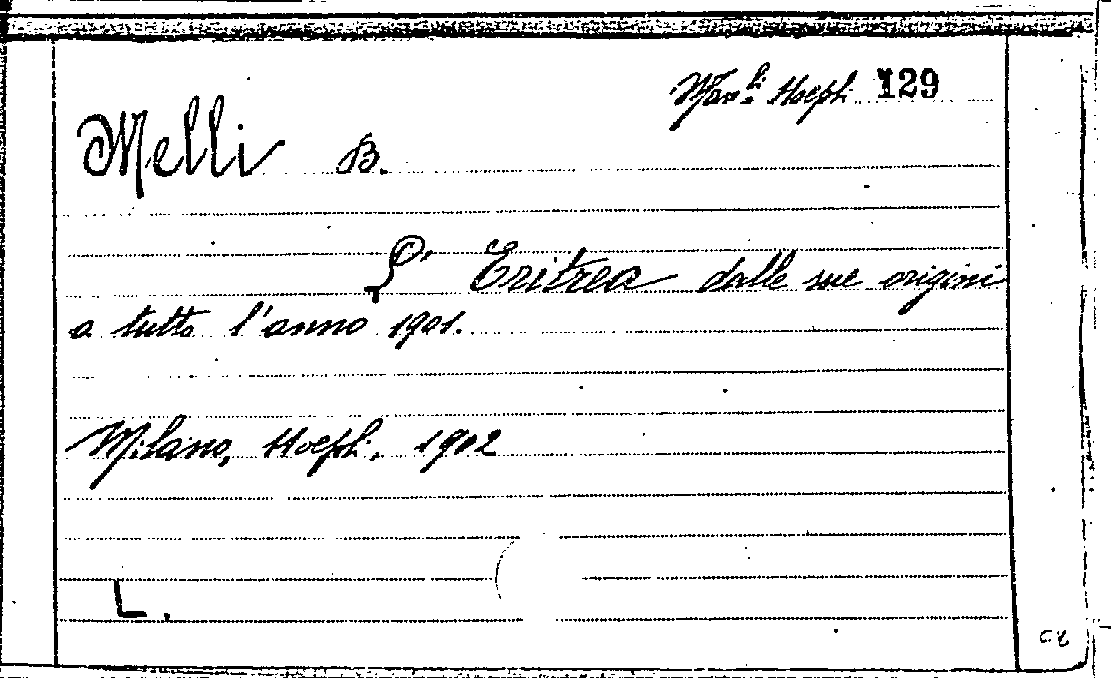 Man.li Hoepli 129
Melli B.
L' Eritrea dalle sue origini
a tutto l'anno 1901.
Milano, Hoepli, 1902
L.